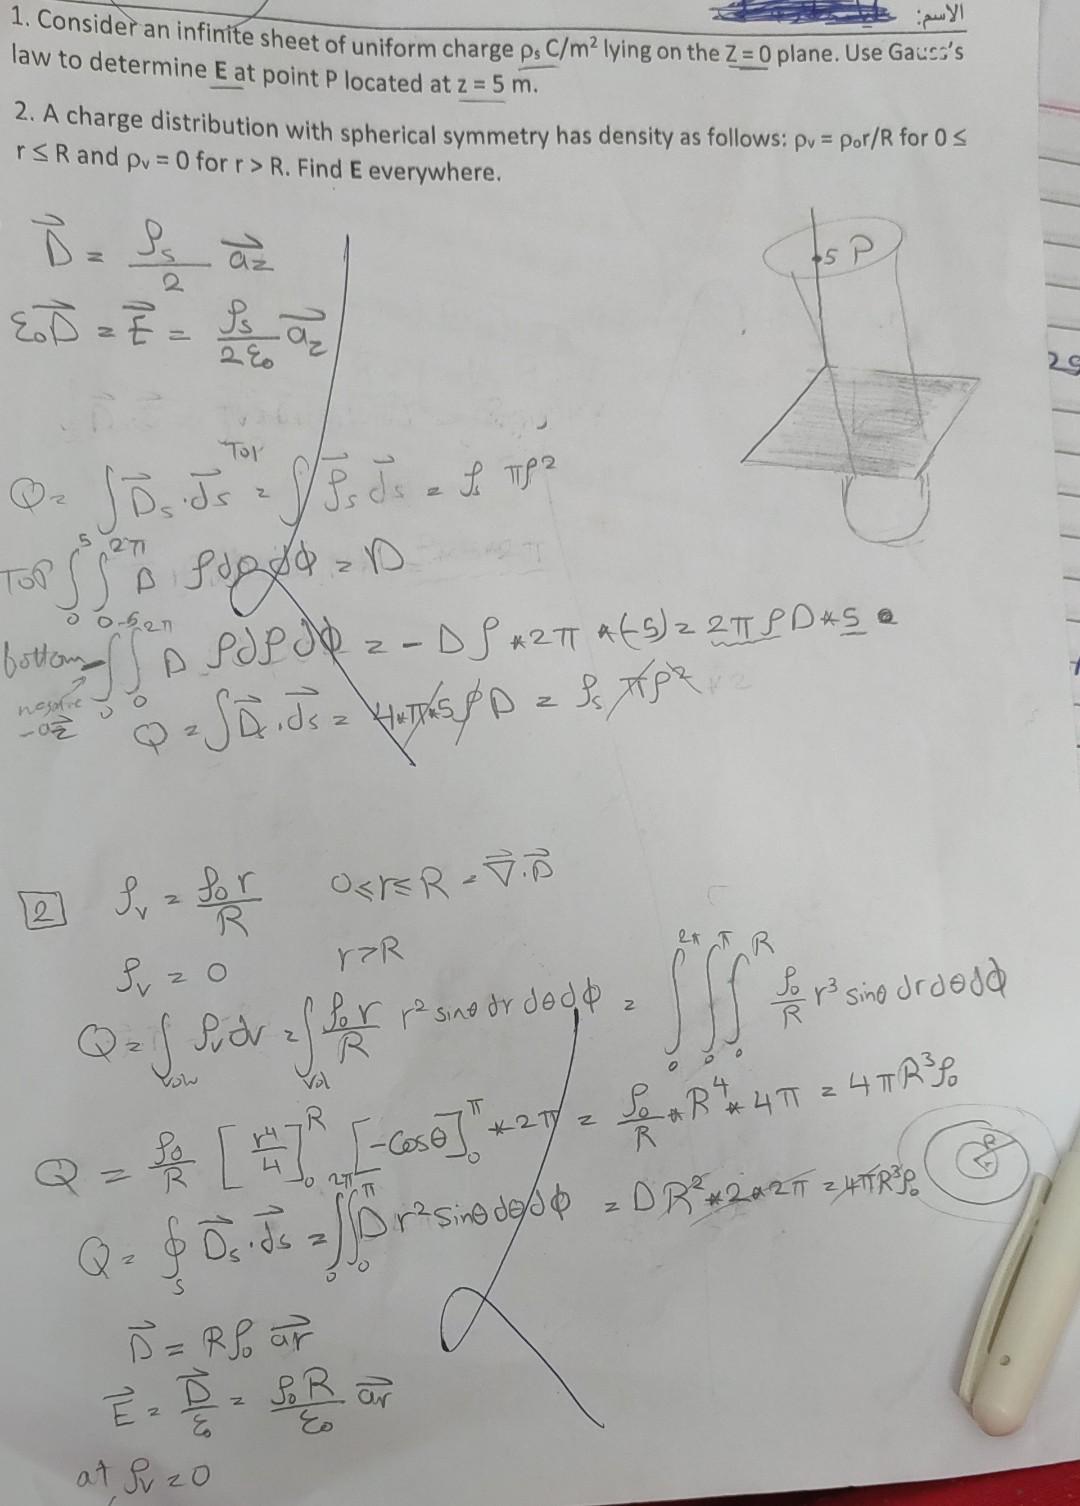 الاسم:
1. Consider an infinite sheet of uniform charge ρs C/m² lying on the Z = 0 plane. Use Gauss's
law to determine E at point P located at z = 5 m.
2. A charge distribution with spherical symmetry has density as follows: ρv = ρor/R for 0 ≤
r ≤ R and ρv = 0 for r > R. Find E everywhere.
D⃗ = ρs/2 a⃗z
ε₀D⃗ = E⃗ = ρs/2ε₀ a⃗z
5 P
29
Top
Q = ∫ D⃗s · d⃗s = ∫ ρ⃗s d⃗s = ρs πρ²
Top ∫₀⁵ ∫₀^2π D ρdρdϕ = D
bottom -∫₀^-5 ∫₀^2π D ρdρdϕ = -Dρ*2π *(-5) = 2πρD*5
negative
-a⃗z
Q = ∫ D⃗s · d⃗s = 4*π*5ρD = ρs πρ²
2 ρv = ρ₀r/R 0≤r≤R = ∇⃗·D⃗
ρv = 0 r>R
Q = ∫vol ρv dv = ∫vol ρ₀r/R r² sinθ dr dθ dϕ = ∫₀^2π ∫₀^π ∫₀^R ρ₀/R r³ sinθ dr dθ dϕ
Q = ρ₀/R [r⁴/4]₀^R [-cosθ]₀^π *2π = ρ₀/R * R⁴ * 4π = 4πR³ρ₀
Q = ∮s D⃗s · d⃗s = ∫₀^2π ∫₀^π D r² sinθ dθ dϕ = DR² *2*2π = 4πR³ρ₀
D⃗ = Rρ₀ a⃗r
E⃗ = D⃗/ε₀ = ρ₀R/ε₀ a⃗r
at ρv = 0